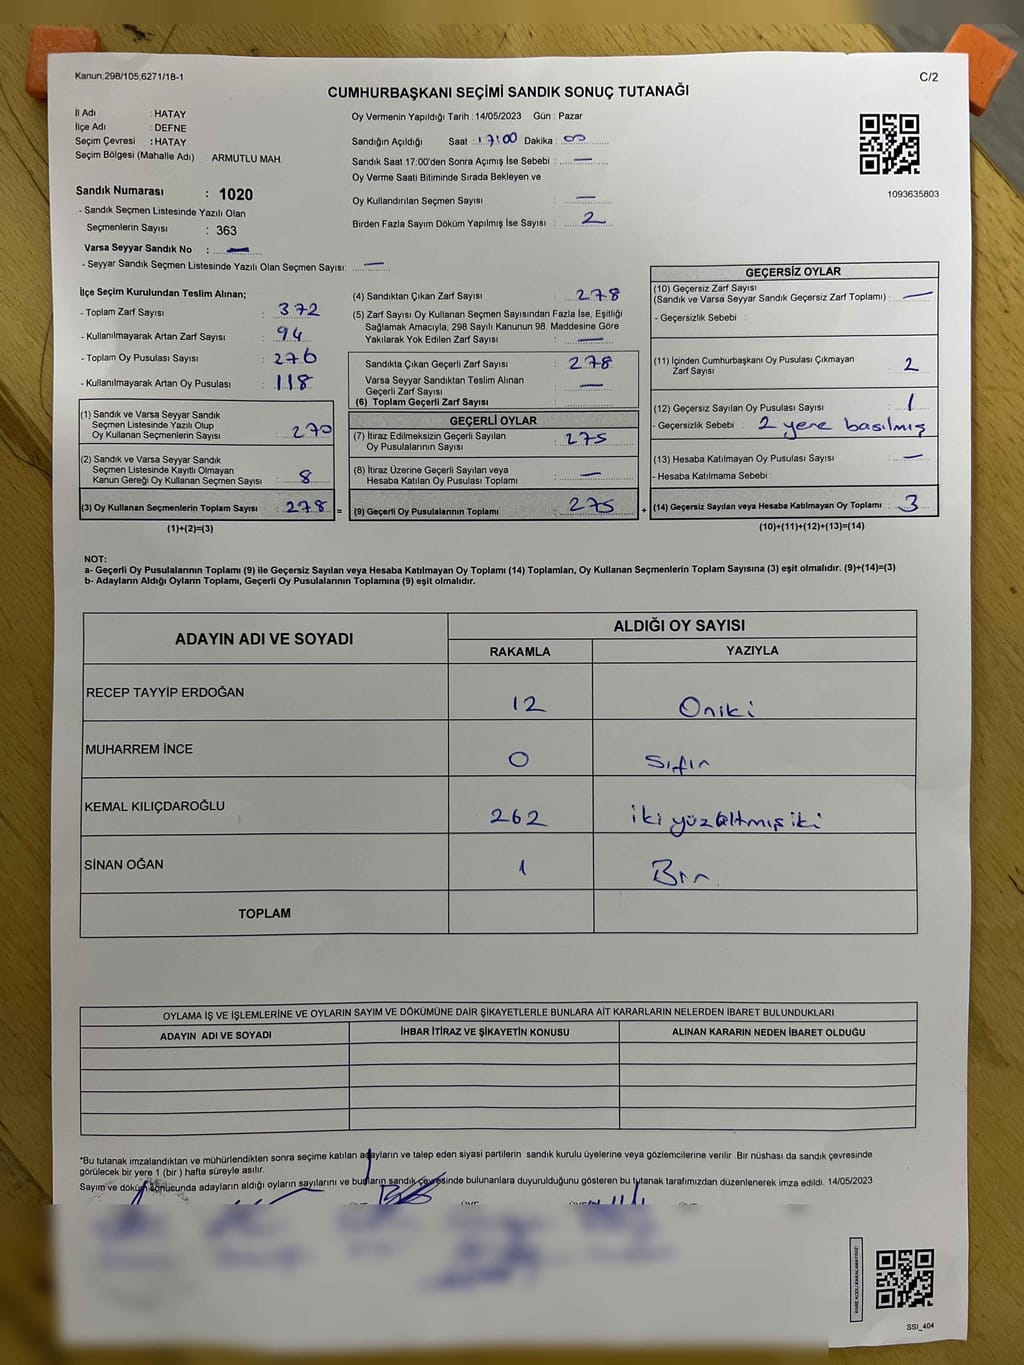 Kanun;298/105;6271/18-1
C/2
CUMHURBAŞKANI SEÇİMİ SANDIK SONUÇ TUTANAĞI
İl Adı : HATAY
İlçe Adı : DEFNE
Seçim Çevresi : HATAY
Seçim Bölgesi (Mahalle Adı) : ARMUTLU MAH.
Sandık Numarası : 1020
- Sandık Seçmen Listesinde Yazılı Olan
Seçmenlerin Sayısı : 363
Varsa Seyyar Sandık No : —
- Seyyar Sandık Seçmen Listesinde Yazılı Olan Seçmen Sayısı: —
Oy Vermenin Yapıldığı Tarih : 14/05/2023 Gün : Pazar
Sandığın Açıldığı Saat : 17:00 Dakika : 00
Sandık Saat 17:00'den Sonra Açımış İse Sebebi : —
Oy Verme Saati Bitiminde Sırada Bekleyen ve
Oy Kullandırılan Seçmen Sayısı : —
Birden Fazla Sayım Döküm Yapılmış İse Sayısı : 2
1093635803
İlçe Seçim Kurulundan Teslim Alınan;
- Toplam Zarf Sayısı : 372
- Kullanılmayarak Artan Zarf Sayısı : 94
- Toplam Oy Pusulası Sayısı : 276
- Kullanılmayarak Artan Oy Pusulası : 118
(1) Sandık ve Varsa Seyyar Sandık
Seçmen Listesinde Yazılı Olup
Oy Kullanan Seçmenlerin Sayısı : 270
(2) Sandık ve Varsa Seyyar Sandık
Seçmen Listesinde Kayıtlı Olmayan
Kanun Gereği Oy Kullanan Seçmen Sayısı : 8
(3) Oy Kullanan Seçmenlerin Toplam Sayısı : 278 =
(1)+(2)=(3)
(4) Sandıktan Çıkan Zarf Sayısı : 278
(5) Zarf Sayısı Oy Kullanan Seçmen Sayısından Fazla İse, Eşitliği
Sağlamak Amacıyla; 298 Sayılı Kanunun 98. Maddesine Göre
Yakılarak Yok Edilen Zarf Sayısı : —
Sandıkta Çıkan Geçerli Zarf Sayısı : 278
Varsa Seyyar Sandıktan Teslim Alınan
Geçerli Zarf Sayısı : —
(6) Toplam Geçerli Zarf Sayısı :
GEÇERLİ OYLAR
(7) İtiraz Edilmeksizin Geçerli Sayılan
Oy Pusulalarının Sayısı : 275
(8) İtiraz Üzerine Geçerli Sayılan veya
Hesaba Katılan Oy Pusulası Toplamı : —
(9) Geçerli Oy Pusulalarının Toplamı : 275 +
GEÇERSİZ OYLAR
(10) Geçersiz Zarf Sayısı
(Sandık ve Varsa Seyyar Sandık Geçersiz Zarf Toplamı) : —
- Geçersizlik Sebebi :
(11) İçinden Cumhurbaşkanı Oy Pusulası Çıkmayan
Zarf Sayısı : 2
(12) Geçersiz Sayılan Oy Pusulası Sayısı : 1
- Geçersizlik Sebebi : 2 yere basılmış
(13) Hesaba Katılmayan Oy Pusulası Sayısı : —
- Hesaba Katılmama Sebebi :
(14) Geçersiz Sayılan veya Hesaba Katılmayan Oy Toplamı : 3
(10)+(11)+(12)+(13)=(14)
NOT:
a- Geçerli Oy Pusulalarının Toplamı (9) ile Geçersiz Sayılan veya Hesaba Katılmayan Oy Toplamı (14) Toplamları, Oy Kullanan Seçmenlerin Toplam Sayısına (3) eşit olmalıdır. (9)+(14)=(3)
b- Adayların Aldığı Oyların Toplamı, Geçerli Oy Pusulalarının Toplamına (9) eşit olmalıdır.
ADAYIN ADI VE SOYADI
ALDIĞI OY SAYISI
RAKAMLA YAZIYLA
RECEP TAYYİP ERDOĞAN 12 Oniki
MUHARREM İNCE 0 Sıfır
KEMAL KILIÇDAROĞLU 262 iki yüz altmış iki
SİNAN OĞAN 1 Bir.
TOPLAM
OYLAMA İŞ VE İŞLEMLERİNE VE OYLARIN SAYIM VE DÖKÜMÜNE DAİR ŞİKAYETLERLE BUNLARA AİT KARARLARIN NELERDEN İBARET BULUNDUKLARI
ADAYIN ADI VE SOYADI İHBAR İTİRAZ VE ŞİKAYETİN KONUSU ALINAN KARARIN NEDEN İBARET OLDUĞU
*Bu tutanak imzalandıktan ve mühürlendikten sonra seçime katılan adayların ve talep eden siyasi partilerin sandık kurulu üyelerine veya gözlemcilerine verilir. Bir nüshası da sandık çevresinde
görülecek bir yere 1 (bir ) hafta süreyle asılır.
Sayım ve döküm sonucunda adayların aldığı oyların sayılarını ve bunların sandık çevresinde bulunanlara duyurulduğunu gösteren bu tutanak tarafımızdan düzenlenerek imza edildi. 14/05/2023
SSI_404